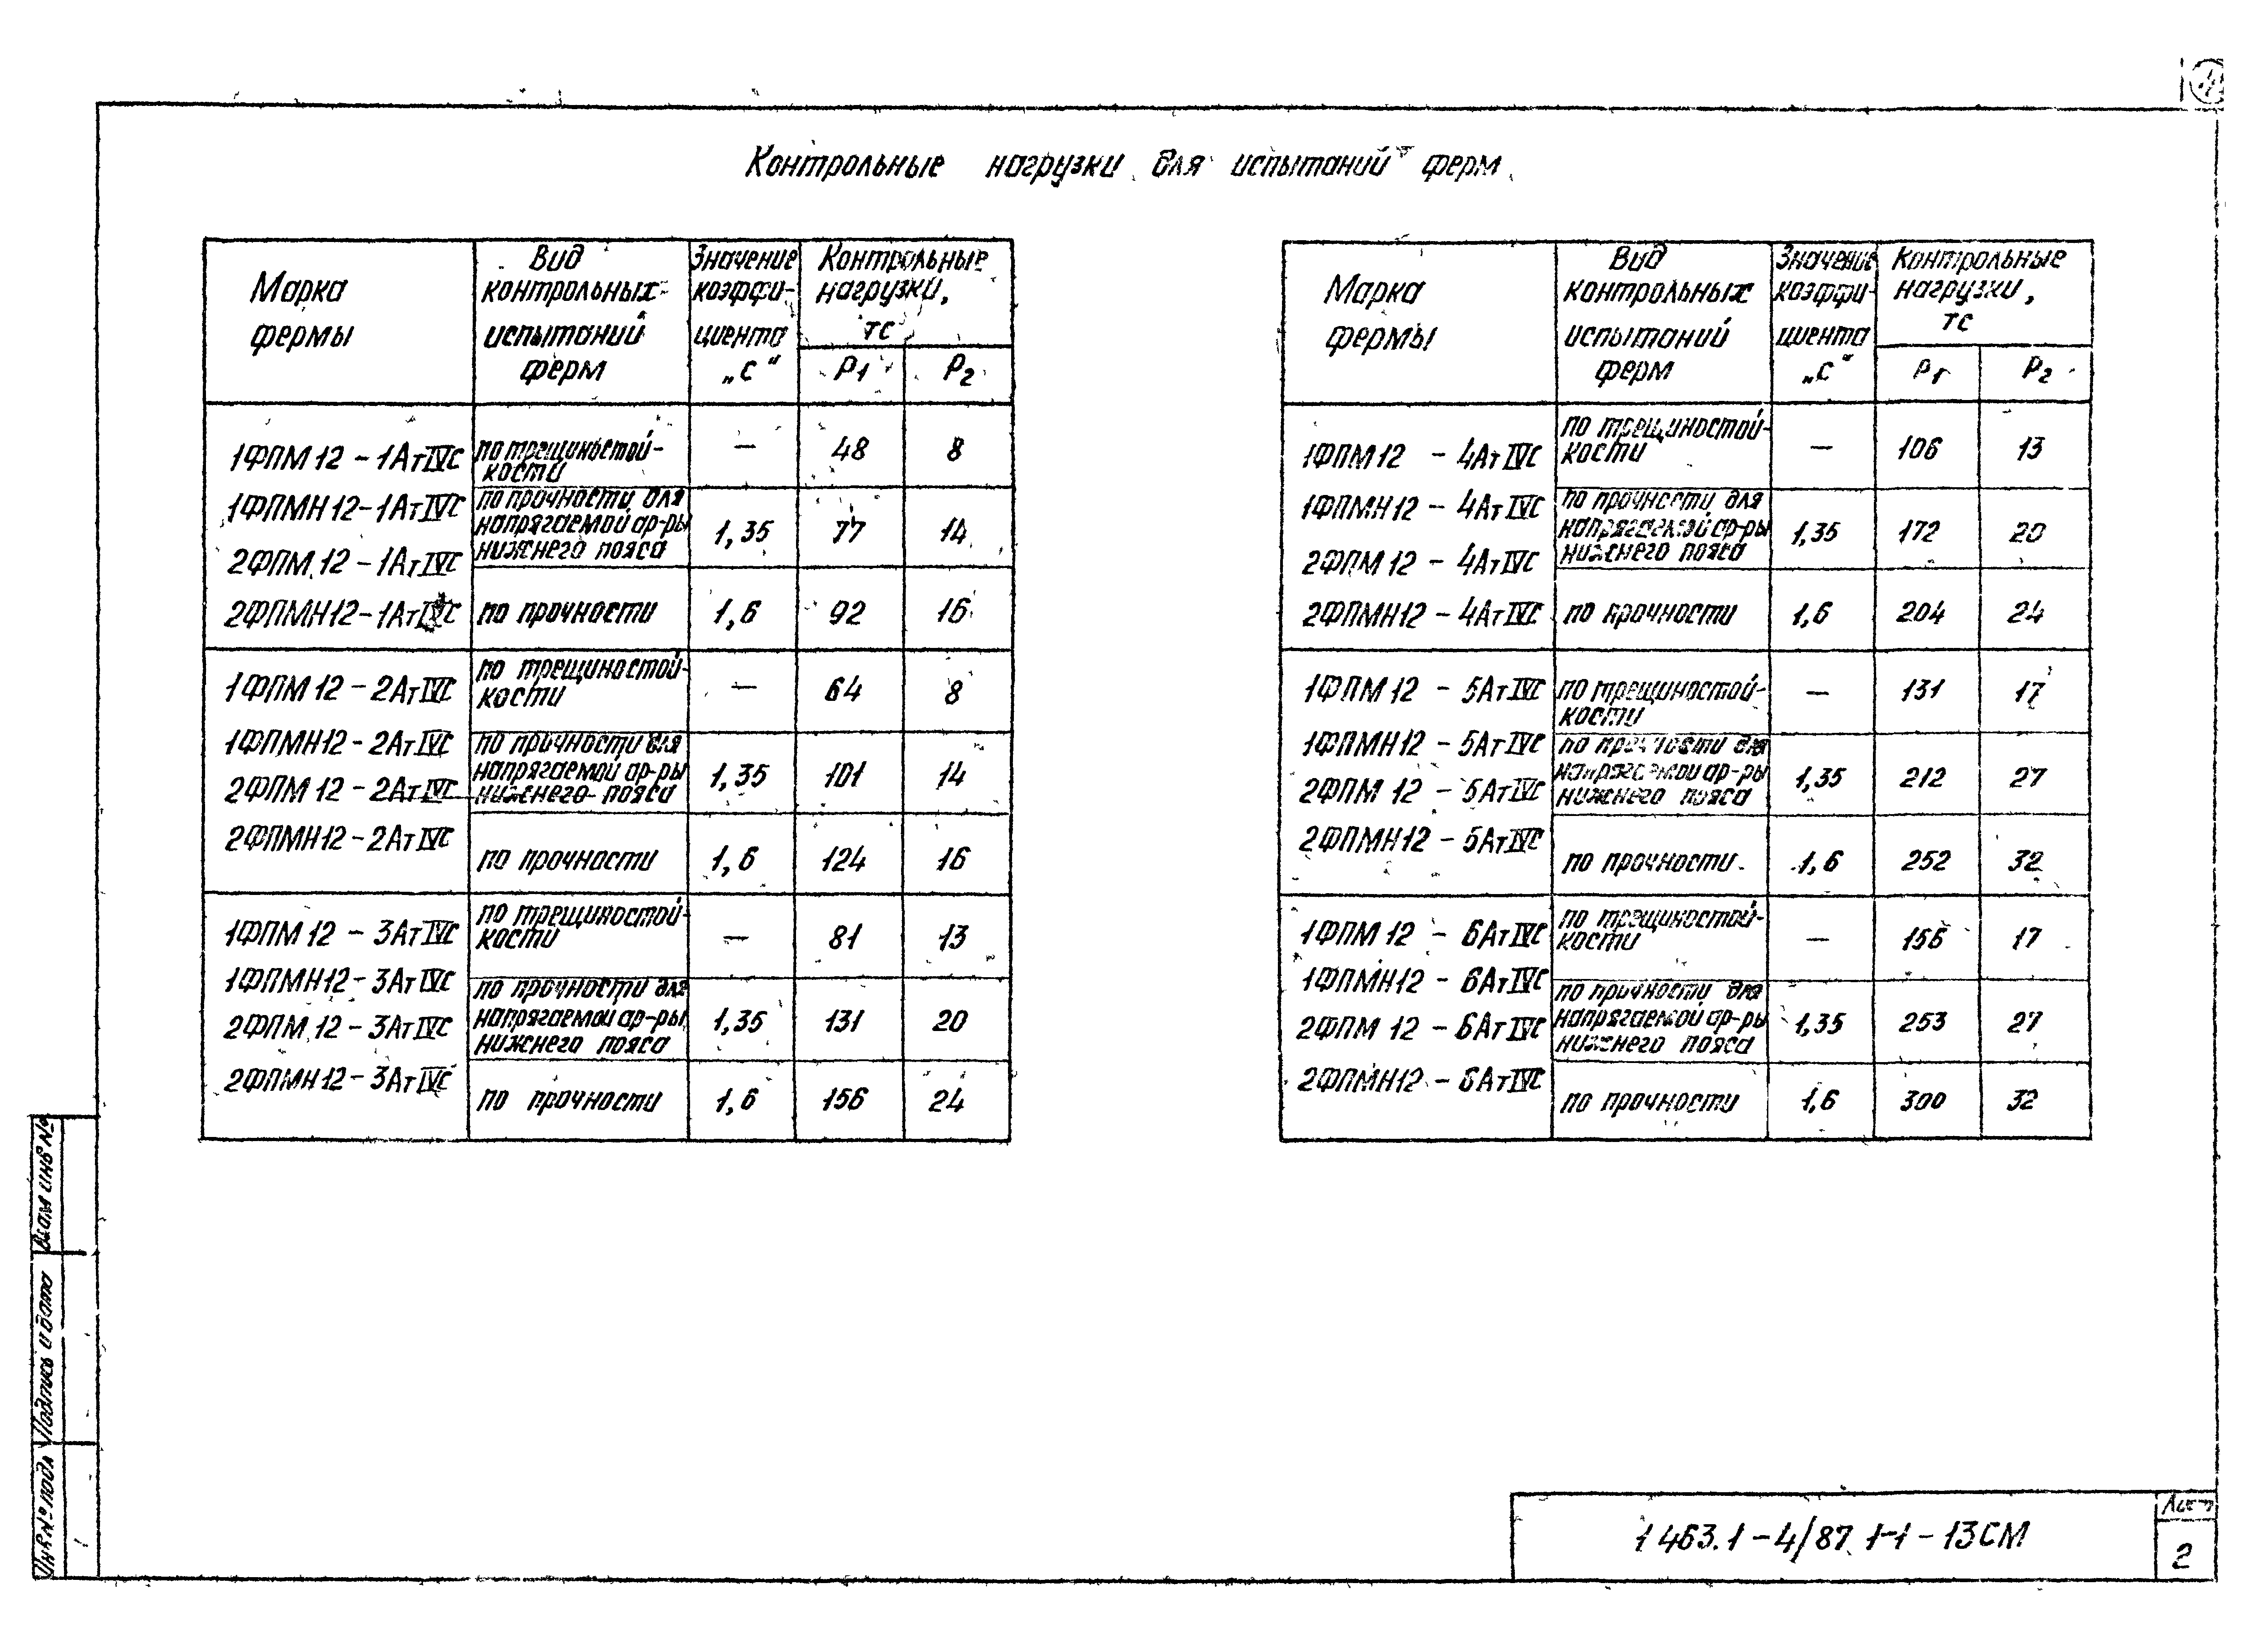 Контрольные нагрузки для испытаний ферм
Марка фермы
Вид контрольных испытаний ферм
Значение коэффициента „с“
Контрольные нагрузки, тс
P1
P2
1ФПМ 12 - 1АтIVС
1ФПМН 12 - 1АтIVС
2ФПМ 12 - 1АтIVС
2ФПМН 12 - 1АтIVС
по трещиностойкости — 48 8
по прочности для напрягаемой ар-ры нижнего пояса 1,35 77 14
по прочности 1,6 92 16
1ФПМ 12 - 2АтIVС
1ФПМН 12 - 2АтIVС
2ФПМ 12 - 2АтIVС
2ФПМН 12 - 2АтIVС
по трещиностойкости — 64 8
по прочности для напрягаемой ар-ры нижнего пояса 1,35 101 14
по прочности 1,6 124 16
1ФПМ 12 - 3АтIVС
1ФПМН 12 - 3АтIVС
2ФПМ 12 - 3АтIVС
2ФПМН 12 - 3АтIVС
по трещиностойкости — 81 13
по прочности для напрягаемой ар-ры нижнего пояса 1,35 131 20
по прочности 1,6 156 24
Марка фермы
Вид контрольных испытаний ферм
Значение коэффициента „с“
Контрольные нагрузки, тс
P1
P2
1ФПМ 12 - 4АтIVС
1ФПМН 12 - 4АтIVС
2ФПМ 12 - 4АтIVС
2ФПМН 12 - 4АтIVС
по трещиностойкости — 106 13
по прочности для напрягаемой ар-ры нижнего пояса 1,35 172 20
по прочности 1,6 204 24
1ФПМ 12 - 5АтIVС
1ФПМН 12 - 5АтIVС
2ФПМ 12 - 5АтIVС
2ФПМН 12 - 5АтIVС
по трещиностойкости — 131 17
по прочности для напрягаемой ар-ры нижнего пояса 1,35 212 27
по прочности 1,6 252 32
1ФПМ 12 - 6АтIVС
1ФПМН 12 - 6АтIVС
2ФПМ 12 - 6АтIVС
2ФПМН 12 - 6АтIVС
по трещиностойкости — 156 17
по прочности для напрягаемой ар-ры нижнего пояса 1,35 253 27
по прочности 1,6 300 32
Взам инв №
Подпись и дата
Инв № подл
1 463.1 - 4/87. 1-1 - 13СМ
Лист
2